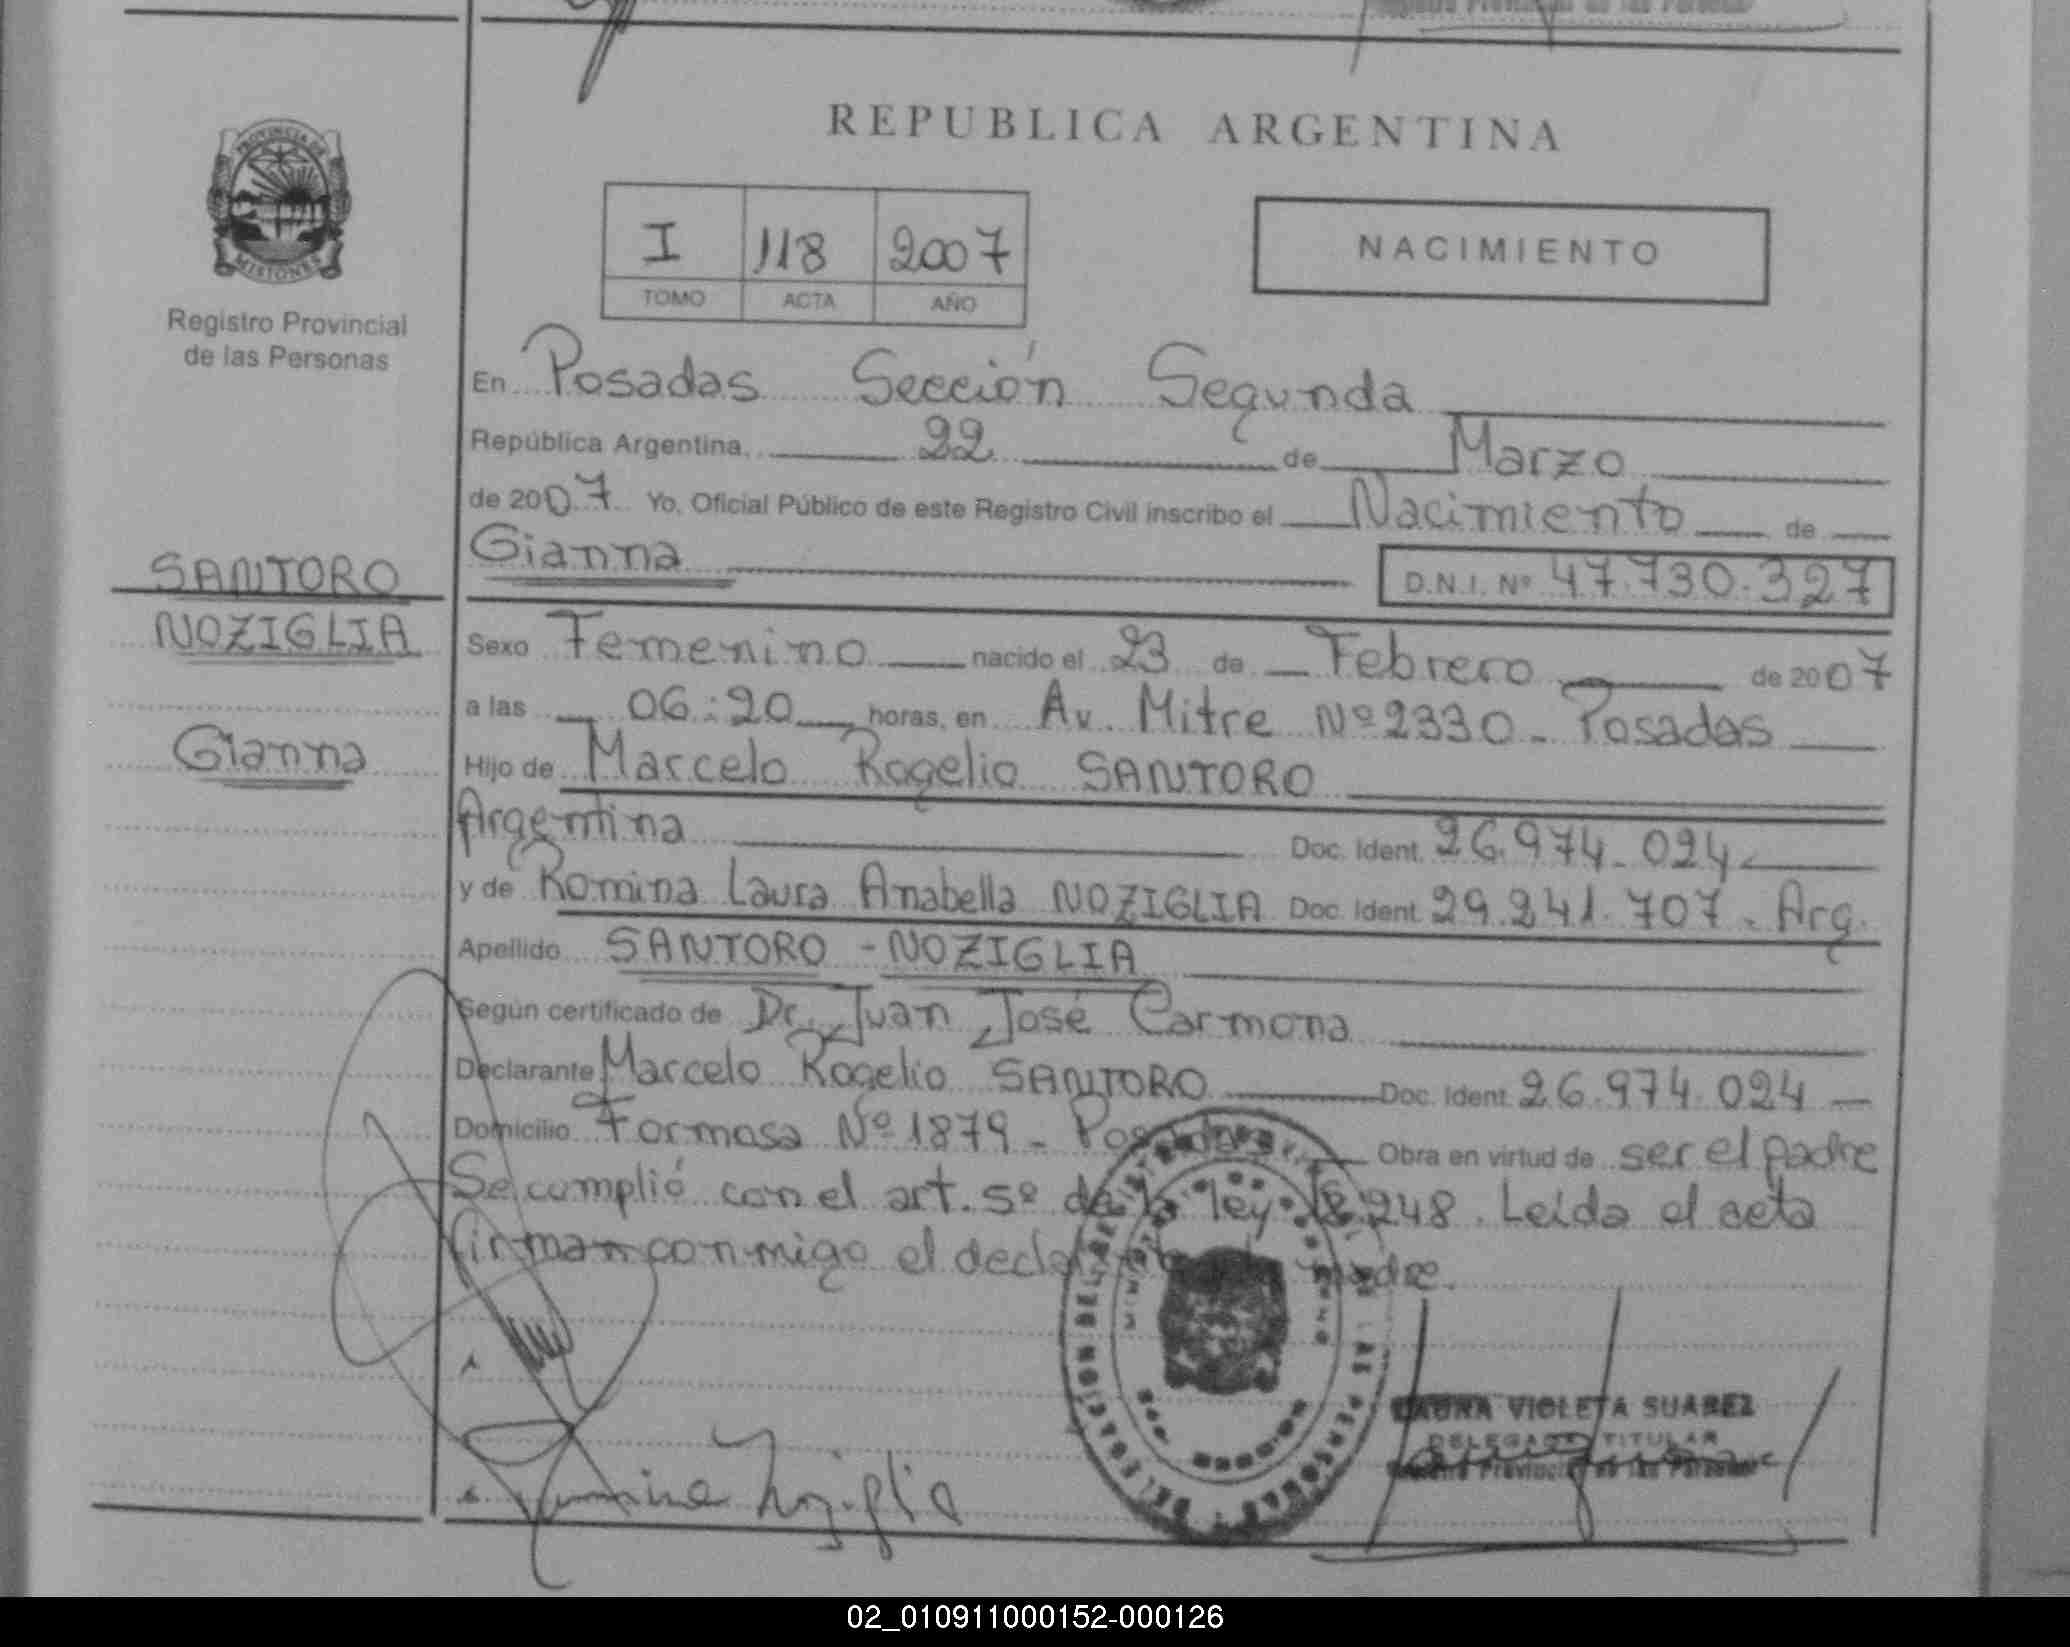 REPUBLICA ARGENTINA
PROVINCIA DE
MISIONES
Registro Provincial
de las Personas
I 118 2007
TOMO ACTA AÑO
NACIMIENTO
En Posadas Sección Segunda
República Argentina, 22 de Marzo
de 2007 Yo, Oficial Público de este Registro Civil inscribo el Nacimiento de
Gianna D.N.I. Nº 47.730.327
SANTORO
NOZIGLIA
Gianna
Sexo Femenino nacido el 23 de Febrero de 2007
a las 06:20 horas, en Av. Mitre Nº 2330 - Posadas
Hijo de Marcelo Rogelio SANTORO
Argentina Doc. Ident. 26.974.024
y de Romina Laura Anabella NOZIGLIA Doc. Ident. 29.241.707 - Arg.
Apellido SANTORO - NOZIGLIA
Según certificado de Dr. Juan José Carmona
Declarante Marcelo Rogelio SANTORO Doc. Ident. 26.974.024
Domicilio Formosa Nº 1879 - Posadas Obra en virtud de ser el padre
Se cumplió con el art. 5º de la ley 18.248. Leída el acta
firman conmigo el declarante madre.
LAURA VIOLETA SUAREZ
DELEGADA TITULAR
Registro Provincial de las Personas
02_010911000152-000126